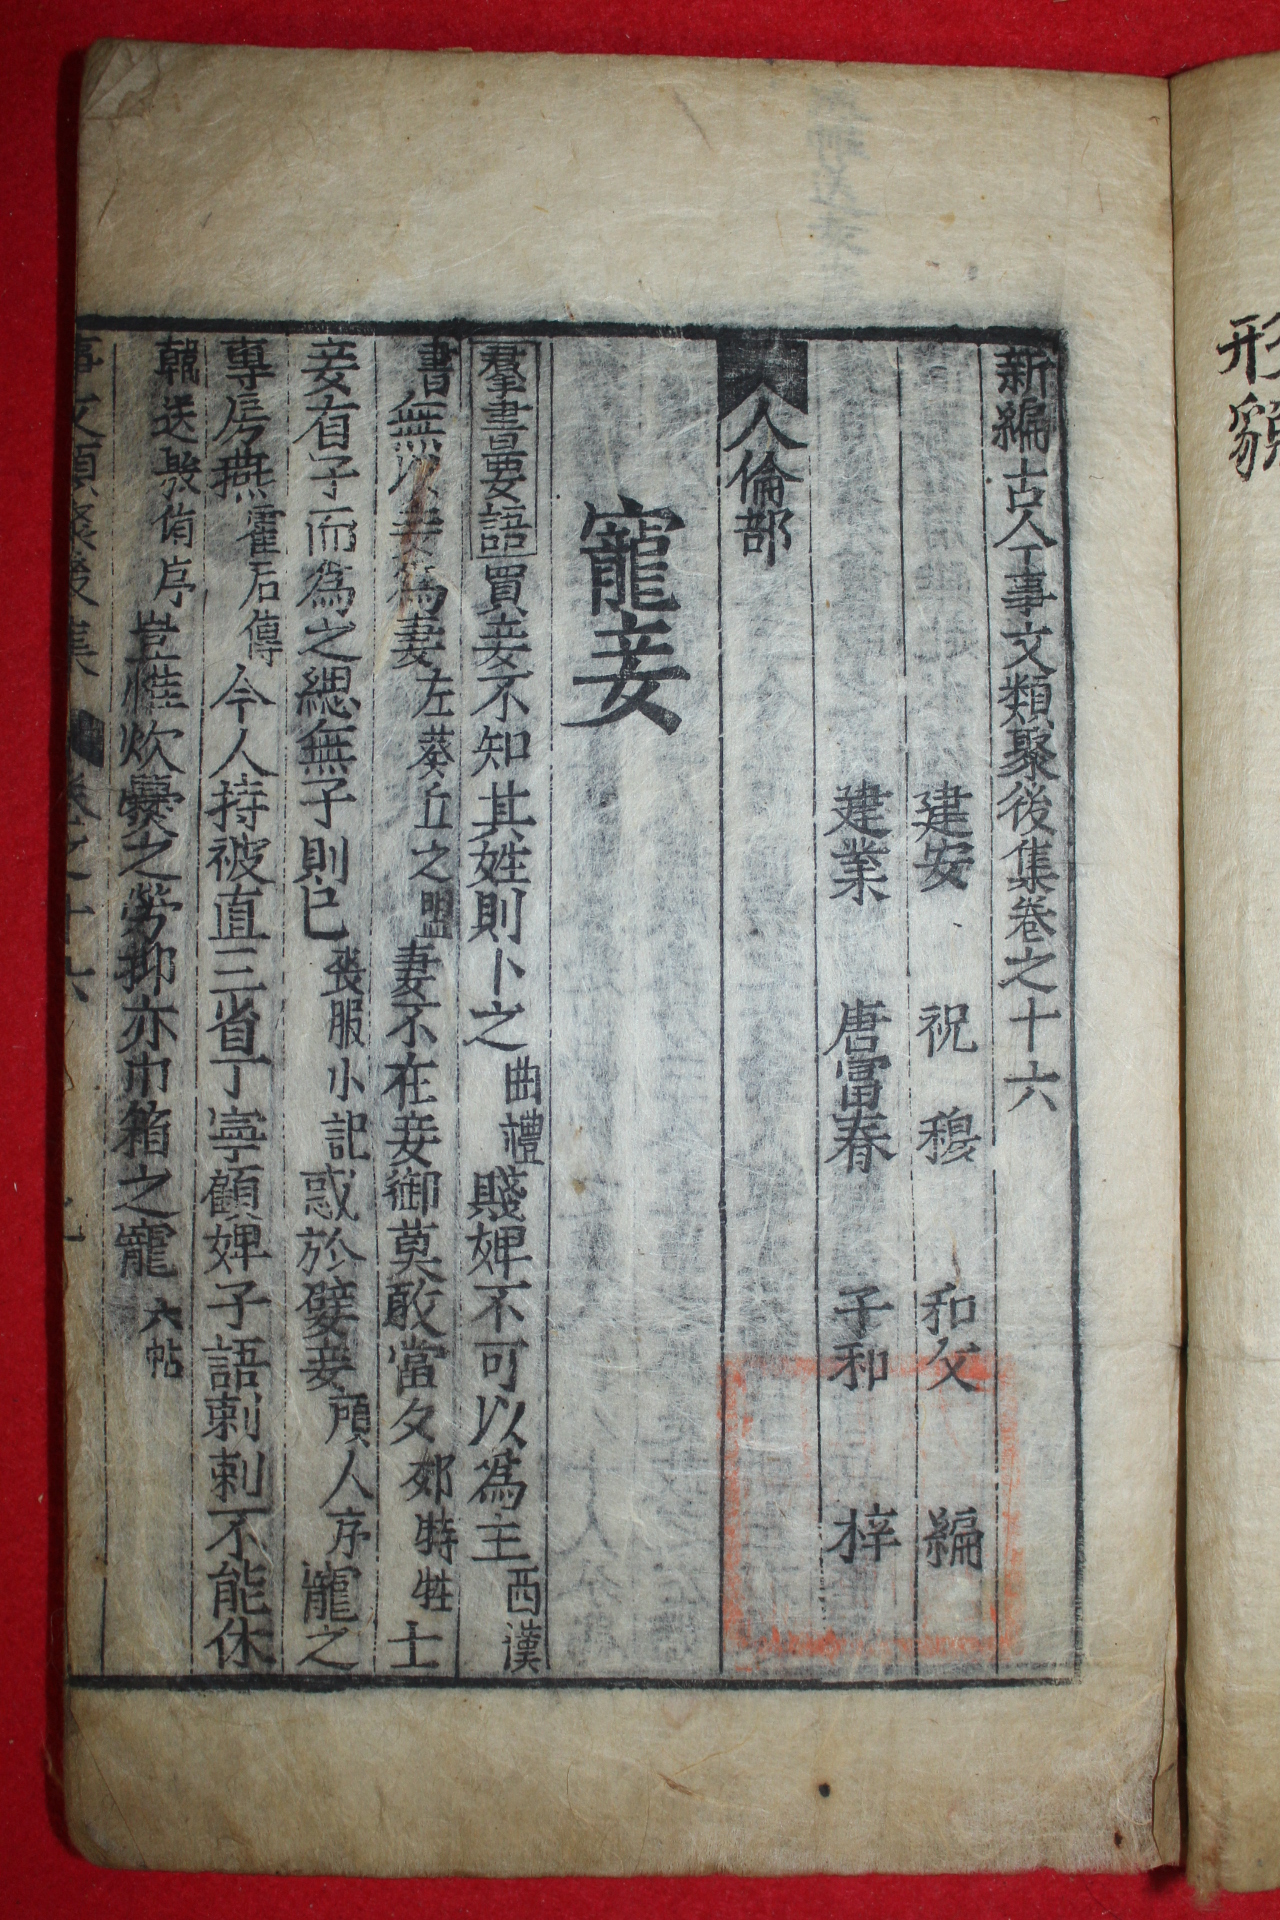 新編古今事文類聚後集卷之十六
建安 祝 穆 和父 編
建業 唐富春 子和 梓
人倫部
寵妾
羣書要語買妾不知其姓則卜之曲禮賤婢不可以爲主西漢
書無以妾爲妻左葵丘之盟妻不在妾御莫敢當夕郊特牲士
妾有子而爲之緦無子則已喪服小記惑於嬖妾碩人序寵之
專房燕霍后傳今人持被直三省丁寧顧婢子語剌剌不能休
韓送殷侑序豈惟炊爨之勞抑亦巾箱之寵六帖
事文類聚後集 卷之十六
形貌